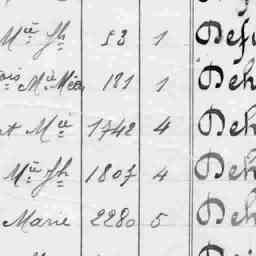 Mie Jh 53 1 Defu
ois Mie Méen 181 1 Deh
et Mie 1742 4 Deh
Mie Jh 1807 4 Deh
Marie 2280 5 Deh